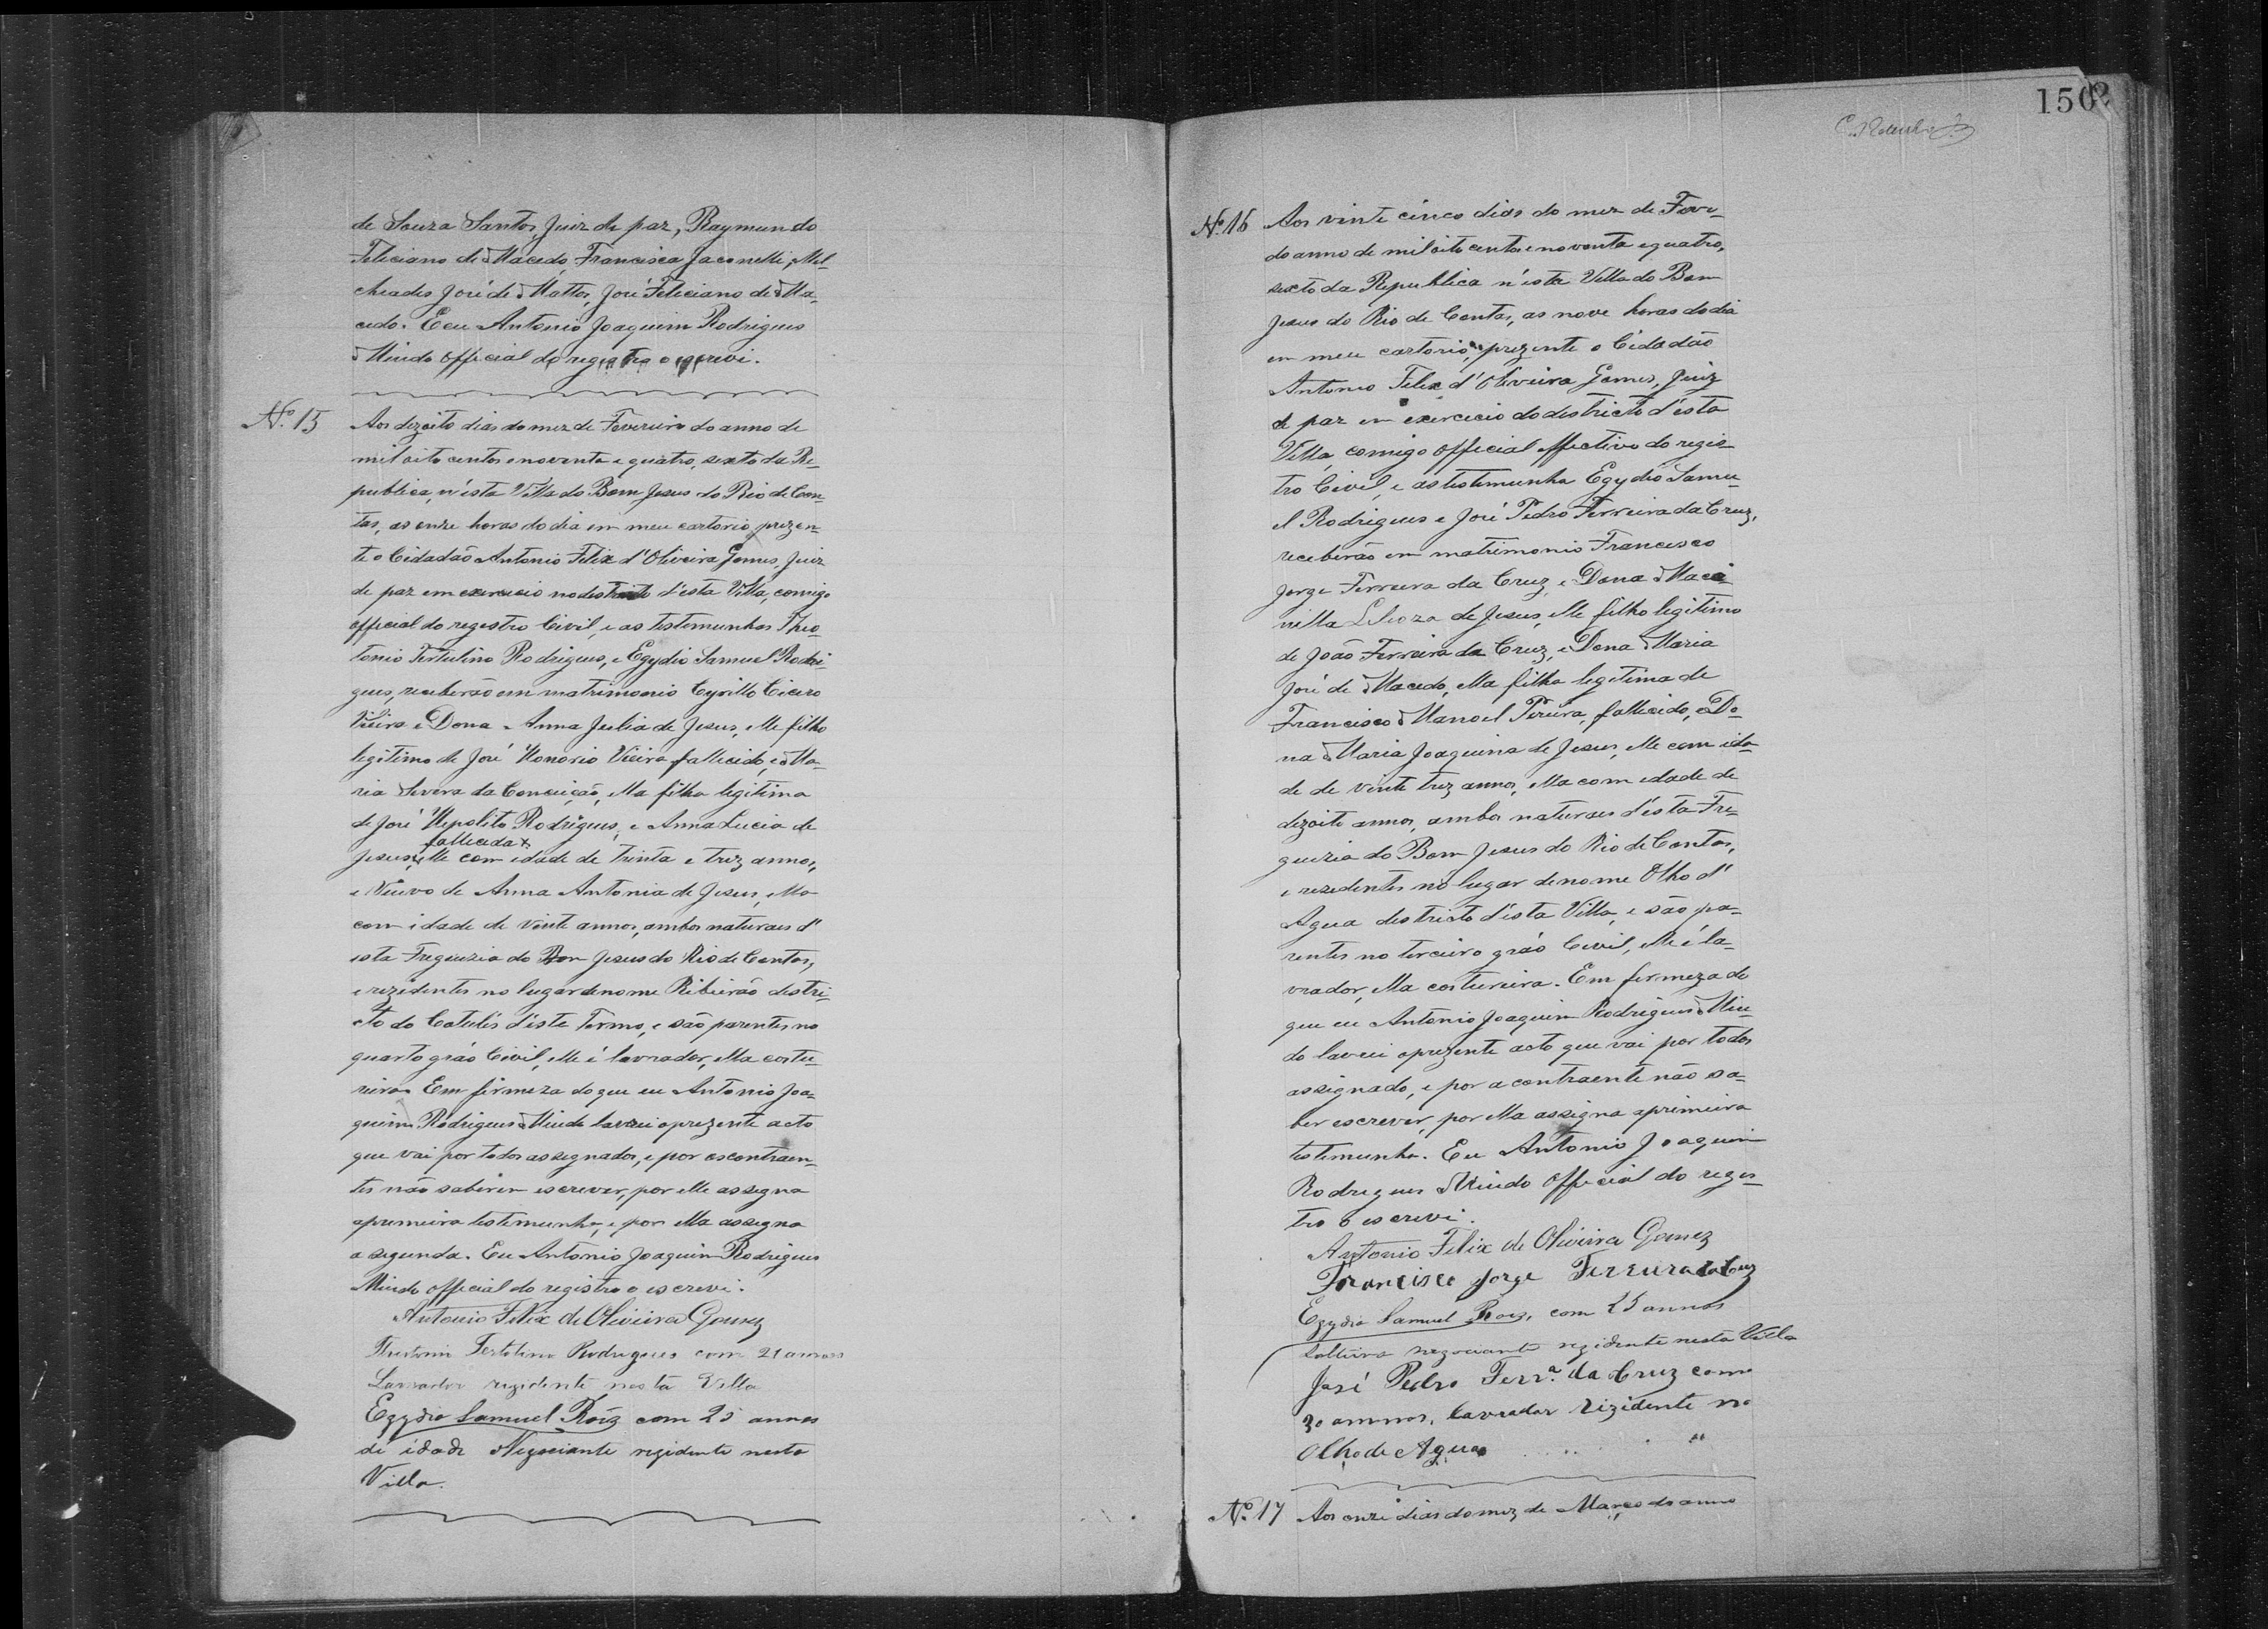 de Souza Santos, Juiz de paz, Raymundo
Feliciano de Macedo, Francisca Jaconelli, Mel-
chiades José de Mattos, José Feliciano de Ma-
cedo. E eu Antonio Joaquim Rodrigues
Mindo official do registro o escrevi.
Nº 15
Aos dezoito dias do mez de Fevereiro do anno de
mil oito centos e noventa e quatro, sexto da Re-
publica, n'esta Villa do Bom Jesus do Rio de Con-
tas, as onze horas do dia em meu cartorio, prezen-
te o Cidadão Antonio Felix d'Oliveira Gomes, Juiz
de paz em exercicio no destricto d'esta Villa, comigo
official do registro Civil, e as testemunhas Theo-
tonio Tertulino Rodrigues, e Egydio Samuel Rodri-
gues, receberão em matrimonio Cyrillo Cicero
Vieira e Dona Anna Julia de Jesus, elle filho
legitimo de José Honorio Vieira fallicido, e Ma-
ria Severa da Conceição, ella filha legitima
de José Hipolito Rodrigues, e Anna Lucia de
fallecida
Jesus, elle com idade de trinta e trez annos,
e Viuvo de Anna Antonia de Jesus, ella
com idade de vinte annos, ambos naturaes d'
esta Freguizia do Bom Jesus do Rio de Contas,
e rezidentes no lugar de nome Ribeirão destri-
cto do Catulés d'este Termo, e são parentes no
quarto gráo Civil, elle é lavrador, ella costu-
reira. Em firmeza do que eu Antonio Joa-
quim Rodrigues Mindo lavrei o prezente acto
que vai por todos assegnados, e por os contraen-
tes não saberem escrever, por elle assegna
a primeira testemunha, e por ella assegna
a segunda. Eu Antonio Joaquim Rodrigues
Mindo official do registro o escrevi.
Antonio Felix de Oliveira Gomez
Theotonio Tertolino Rodrigues com 21 annos
Lavrador rezidente nesta Villa
Egydio Samuel Roiz com 25 annos
de idade Negociante rezidente nesta
Villa.
150
Nº 16
Aos vinte cinco dias do mez de Feve-
do anno de mil oito centos e noventa e quatro,
sexto da Republica n'esta Villa do Bom
Jesus do Rio de Contas, as nove horas do dia
em meu cartorio, prezente o Cidadão
Antonio Felix d'Oliveira Gomes, Juiz
de paz em exercicio do destricto d'esta
Villa, comigo official effectivo do regis-
tro Civil, e as testemunha Egydio Samu-
el Rodrigues e José Pedro Ferreira da Cruz,
receberão em matrimonio Francisco
Jorge Ferreira da Cruz, e Dona
de Jesus, elle filho legitimo
de João Ferreira da Cruz, e Dona Maria
José de Macedo, ella filha legitima de
Francisco Manoel Pereira, fallicido, e Do-
na Maria Joaquina de Jesus, elle com ida-
de de vinte trez annos, ella com idade de
dezoito annos, ambos naturaes d'esta Fre-
guizia do Bom Jesus do Rio de Contas,
e rezidentes no lugar de nome Olho d'
Agua destricto d'esta Villa, e são pa-
rentes no terceiro gráo Civil, elle é la-
vrador, ella costureira. Em firmeza do
que eu Antonio Joaquim Rodrigues Min-
do lavrei o prezente acto que vai por todos
assignado, e por a contraente não sa-
ber escrever, por ella assigna a primeira
testemunha. Eu Antonio Joaquim
Rodrigues Mindo official do regis-
tro o escrevi.
Antonio Felix de Oliveira Gomez
Francisco Jorge Ferreira da Cruz
Egydio Samuel Roiz, com 25 annos
solteiro negociante rezidente nesta Villa
José Pedro Ferrª da Cruz com
30 annos, lavrador rizidente no
Olho de Agua
Nº 17
Aos onze dias do mez de Março do anno